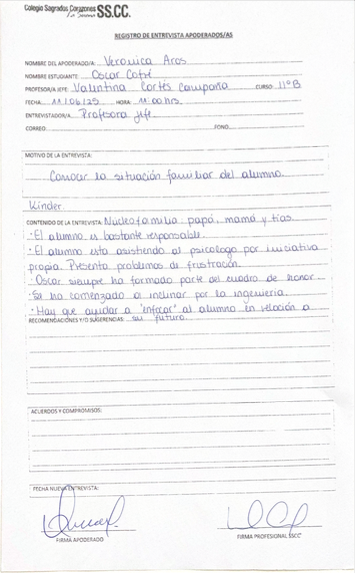 Colegio Sagrados Corazones SS.CC.
La Serena
REGISTRO DE ENTREVISTA APODERADOS/AS
NOMBRE DEL APODERADO/A: Verónica Aros
NOMBRE ESTUDIANTE: Oscar
PROFESOR/A JEFE: Valentina Cortés Campaña CURSO: IIºB
FECHA: 11/06/25 HORA: 11:00 hrs.
ENTREVISTADOR/A: Profesora jefe.
CORREO: FONO:
MOTIVO DE LA ENTREVISTA:
Conocer la situación familiar del alumno.
Kinder
CONTENIDO DE LA ENTREVISTA: Núcleo familia: papá, mamá y tías.
· El alumno es bastante responsable.
· El alumno esta asistiendo al psicologo por iniciativa
propia. Presenta problemas de frustración.
· Oscar siempre ha formado parte del cuadro de honor
· Se ha comenzado a inclinar por la ingeniería.
· Hay que ayudar a "enfocar" al alumno en relación a
RECOMENDACIONES Y/O SUGERENCIAS: su futuro.
ACUERDOS Y COMPROMISOS:
FECHA NUEVA ENTREVISTA:
FIRMA APODERADO FIRMA PROFESIONAL SSCC